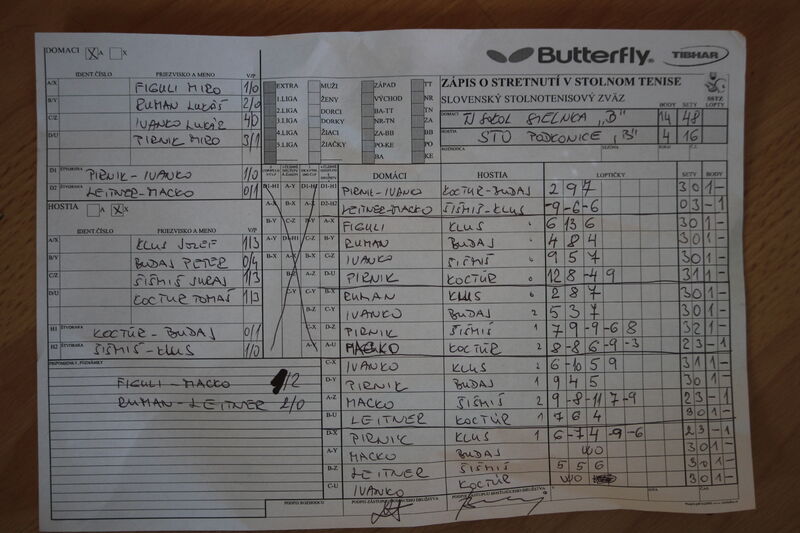 DOMÁCI X A X
Butterfly
TIBHAR
IDENT.ČÍSLO PRIEZVISKO A MENO V/P
A/X FIGULI MIRO 1/0
B/Y RUMAN LUKÁŠ 2/0
C/Z IVANKO LUKÁŠ 4/0
D/U PIRNIK MIRO 3/1
D1 ŠTVORHRA PIRNIK-IVANKO 1/0
D2 LEITNER-MACKO 0/1
HOSTIA A X
IDENT.ČÍSLO PRIEZVISKO A MENO V/P
A/X KLUS JOZEF 1/3
B/Y BUDAJ PETER 0/4
C/Z ŠIŠMIŠ JURAJ 1/3
D/U KOCTÚR TOMÁŠ 1/3
H1 ŠTVORHRA KOCTÚR-BUDAJ 0/1
H2 ŠIŠMIŠ-KLUS 1/0
PRIPOMIENKY, POZNÁMKY
FIGULI-MACKO 1/2
RUMAN-LEITNER 2/0
EXTRA MUŽI ZÁPAD TT
1.LIGA ŽENY VÝCHOD NR
2.LIGA DORCI BA-TT TN
3.LIGA DORKY NR-TN ZA
4.LIGA ŽIACI ZA-BB BB
5.LIGA ŽIAČKY PO-KE PO
BA KE
ZÁPIS O STRETNUTÍ V STOLNOM TENISE
SLOVENSKÝ STOLNOTENISOVÝ ZVÄZ
SSTZ
LOPTY
DOMÁCI TJ SOKOL SIELNICA "B" BODY 14 SETY 48
HOSTIA STO PODKONICE "B" 4 16
ROZHODCA
DOMÁCI HOSTIA LOPTIČKY SETY BODY
D1-H1 PIRNIK-IVANKO KOCTÚR-BUDAJ 2 9 7 3 0 1 -
D2-H2 LEITNER-MACKO ŠIŠMIŠ-KLUS -9 -6 -6 0 3 - 1
A-X FIGULI KLUS 6 13 6 3 0 1 -
B-Y RUMAN BUDAJ 4 8 4 3 0 1 -
C-Z IVANKO ŠIŠMIŠ 9 5 7 3 0 1 -
D-U PIRNIK KOCTÚR 12 8 -4 9 3 1 1 -
B-X RUMAN KLUS 2 8 7 3 0 1 -
C-Y IVANKO BUDAJ 2 5 3 7 3 0 1 -
D-Z PIRNIK ŠIŠMIŠ 1 7 9 -9 -6 8 3 2 1 -
A-U MACKO KOCTÚR 2 8 -8 6 -9 -3 2 3 - 1
C-X IVANKO KLUS 6 -10 5 9 3 1 1 -
D-Y PIRNIK BUDAJ 1 9 4 5 3 0 1 -
A-Z MACKO ŠIŠMIŠ 2 9 -8 -11 7 -9 2 3 - 1
B-U LEITNER KOCTÚR 1 7 6 4 3 0 1 -
D-X PIRNIK KLUS 1 6 -7 4 -9 -6 2 3 - 1
A-Y MACKO BUDAJ WO 3 0 1 -
B-Z LEITNER ŠIŠMIŠ 5 5 6 3 0 1 -
C-U IVANKO KOCTÚR WO 3 0 1 -
PODPIS ROZHODCU PODPIS ZÁSTUPCU DOMÁCEHO DRUŽSTVA PODPIS ZÁSTUPCU HOSŤUJÚCEHO DRUŽSTVA